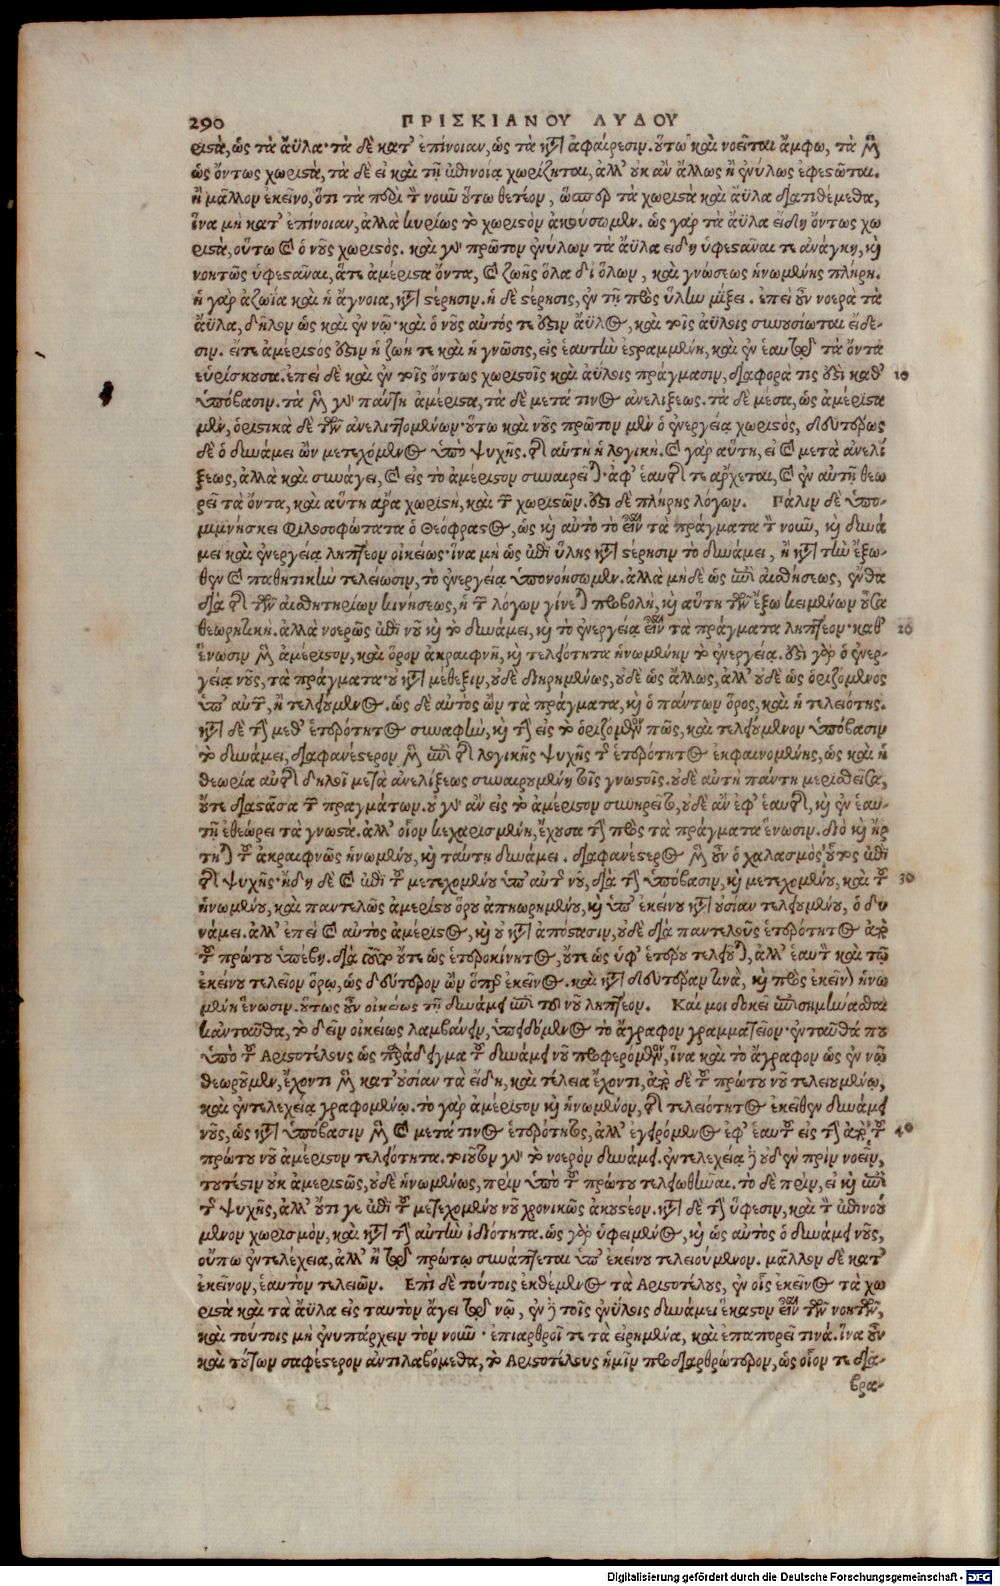 290 ΠΡΙΣΚΙΑΝΟΥ ΛΥΔΟΥ
ριστὰ, ὡς τὰ ἄϋλα· τὰ δὲ κατ' ἐπίνοιαν, ὡς τὰ κατ' ἀφαίρεσιν. οὕτω καὶ νοεῖται ἄμφω, τὰ μὲν
ὡς ὄντως χωριστὰ, τὰ δὲ εἰ καὶ τῇ ἐπινοίᾳ χωρίζηται, ἀλλ' οὐκ ἂν ἄλλως ἢ ἐνύλως ἐφεστῶται.
ἢ μᾶλλον ἐκεῖνο, ὅτι τὰ περὶ τοῦ νοῦν οὕτω θετέον, ὥσπερ τὰ χωριστὰ καὶ ἄϋλα διατιθέμεθα,
ἵνα μὴ κατ' ἐπίνοιαν, ἀλλὰ κυρίως τὸ χωριστὸν ἀκούσωμεν. ὡς γὰρ τὰ ἄϋλα εἴδη ὄντως χω
ριστὰ, οὕτω καὶ ὁ νοῦς χωριστός. καὶ γοῦν πρῶτον ἐνύλων τὰ ἄϋλα εἴδη ὑφεστᾶναι τε ἀνάγκη, καὶ
νοητῶς ὑφεστᾶναι, ἅτε ἀμέριστα ὄντα, καὶ ζωῆς ὅλα δι' ὅλων, καὶ γνώσεως ἡνωμένης πλήρη.
ἡ γὰρ ἀζωΐα καὶ ἡ ἄγνοια, κατὰ στέρησιν. ἡ δὲ στέρησις, ἐν τῇ πρὸς ὕλην μίξει. ἐπεὶ οὖν νοερὰ τὰ
ἄϋλα, δῆλον ὡς καὶ ἐν νῷ· καὶ ὁ νοῦς αὐτός τε ἐστιν ἄϋλος, καὶ τοῖς ἀΰλοις συνουσίωται εἴδε-
σιν. εἴτε ἀμέριστός ἐστιν ἡ ζωή τε καὶ ἡ γνῶσις, εἰς ἑαυτὴν ἐστραμμένη, καὶ ἐν ἑαυτῷ τὰ ὄντα
εὑρίσκουσα. ἐπεὶ δὲ καὶ ἐν τοῖς ὄντως χωριστοῖς καὶ ἀΰλοις πράγμασιν, διαφορά τις ἐστὶ καθ' 10
ὑπόβασιν. τὰ μὲν γοῦν πάντῃ ἀμέριστα, τὰ δὲ μετά τινος ἀνελίξεως. τὰ δὲ μέσα, ὡς ἀμέριστα
μὲν, ὁριστικὰ δὲ τῶν ἀνελιττομένων· οὕτω καὶ νοῦς πρῶτον μὲν ὁ ἐνεργείᾳ χωριστός, δευτέρως
δὲ ὁ δυνάμει ὢν μετεχόμενος ὑπὸ ψυχῆς. τῆς αὐτῆς ἡ λογική. καὶ γὰρ αὕτη, εἰ καὶ μετὰ ἀνελί
ξεως, ἀλλὰ καὶ συνάγει, καὶ εἰς τὸ ἀμέριστον συναιρεῖται· ἀφ' ἑαυτῆς τε ἄρχεται, καὶ ἐν αὑτῇ θεω
ρεῖ τὰ ὄντα, καὶ αὕτη ἄρα χωριστὴ, καὶ τῶν χωριστῶν. ἐστι δὲ πλήρης λόγων. Πάλιν δὲ ὑπο-
μιμνήσκει φιλοσοφώτατα ὁ Θεόφραστος, ὡς καὶ αὐτὸ τὸ εἶναι τὰ πράγματα τὸν νοῦν, καὶ δυνά
μει καὶ ἐνεργείᾳ ληπτέον οἰκείως· ἵνα μὴ ὡς ἐπὶ ὕλης κατὰ στέρησιν τὸ δυνάμει, ἢ κατὰ τὴν ἔξω-
θεν καὶ παθητικὴν τελείωσιν, τὸ ἐνεργείᾳ ὑπονοήσωμεν. ἀλλὰ μηδὲ ὡς ἐπὶ αἰσθήσεως, ἔνθα
διὰ τῆς τῶν αἰσθητηρίων κινήσεως, ἡ τῶν λόγων γίνεται προβολὴ, καὶ αὕτη τῶν ἔξω κειμένων οὖσα
θεωρητική. ἀλλὰ νοερῶς ἐπὶ νοῦ καὶ τὸ δυνάμει, καὶ τὸ ἐνεργείᾳ εἶναι τὰ πράγματα ληπτέον· καθ' 20
ἕνωσιν μὲν ἀμέριστον, καὶ ὅρον ἀκραιφνῆ, καὶ τελειότητα ἡνωμένην τὸ ἐνεργείᾳ. ἐστι γὰρ ὁ ἐνερ-
γείᾳ νοῦς, τὰ πράγματα· οὐ κατὰ μέθεξιν, οὐδὲ διῃρημένως, οὐδὲ ὡς ἄλλως, ἀλλ' οὐδὲ ὡς ὁριζόμενος
ὑπ' αὐτῶν, ἢ τελειούμενος. ὡς δὲ αὐτὸς ὢν τὰ πράγματα, καὶ ὁ πάντων ὅρος, καὶ ἡ τελειότης.
κατὰ δὲ τὴν μεθ' ἑτερότητος συναφὴν, καὶ τὴν εἰς τὸ ὁριζόμενόν πως, καὶ τελειούμενον ὑπόβασιν
τὸ δυνάμει, διαφανέστερον μὲν ἐπὶ τῆς λογικῆς ψυχῆς τῆς ἑτερότητος ἐκφαινομένης, ὡς καὶ ἡ
θεωρία αὐτῆς δηλοῖ μετὰ ἀνελίξεως συναιρουμένη τοῖς γνωστοῖς. οὐδὲ αὐτὴ πάντῃ μερισθεῖσα,
οὔτε διαστᾶσα τῶν πραγμάτων. οὐ γοῦν ἂν εἰς τὸ ἀμέριστον συνῃρεῖτο, οὐδὲ ἂν ἐφ' ἑαυτῆς, καὶ ἐν ἑαυ-
τῇ ἐθεώρει τὰ γνωστά. ἀλλ' οἷον κεχαρισμένη, ἔχουσα τὴν πρὸς τὰ πράγματα ἕνωσιν. διὸ καὶ ἤρ
τηται τοῦ ἀκραιφνῶς ἡνωμένου, καὶ ταύτῃ δυνάμει. διαφανέστερος μὲν οὖν ὁ χαλασμὸς οὗτος ἐπὶ
τῆς ψυχῆς· ἤδη δὲ καὶ ἐπὶ τοῦ μετεχομένου ὑπ' αὐτῆς νοῦ, διὰ τὴν ὑπόβασιν, καὶ μετεχομένου, καὶ τοῦ 30
ἡνωμένου, καὶ παντελῶς ἀμερίστου ὅρου ἀπῃωρημένου, καὶ ὑπ' ἐκείνου κατ' οὐσίαν τελειουμένου, ὁ δυ
νάμει. ἀλλ' ἐπεὶ καὶ αὐτὸς ἀμέριστος, καὶ οὐ κατὰ ἀπόστασιν, οὐδὲ διὰ παντελοῦς ἑτερότητος ἀπὸ
τοῦ πρώτου ὑπέβη. διὰ τοῦτο οὔτε ὡς ἑτεροκίνητος, οὔτε ὡς ὑφ' ἑτέρου τελειοῦται, ἀλλ' ἑαυτὸν καὶ τῷ
ἐκείνου τελείῳ ὅρῳ, ὡς δεύτερον ὢν ὅπερ ἐκεῖνος. καὶ κατὰ δευτέραν τινὰ, καὶ πρὸς ἐκεῖνον ἡνω
μένη ἕνωσιν. οὕτως οὖν οἰκείως τῇ δυνάμει ἐπὶ τοῦ νοῦ ληπτέον. Καί μοι δοκεῖ ἐπισημήνασθαι
κἀνταῦθα, τὸ δεῖν οἰκείως λαμβάνειν, ὑπειδόμενος τὸ ἄγραφον γραμματεῖον· ἐνταῦθά που
ὑπὸ τοῦ Ἀριστοτέλους ὡς παράδειγμα τοῦ δυνάμει νοῦ προφερομένων, ἵνα καὶ τὸ ἄγραφον ὡς ἐν νῷ
θεωρῶμεν, ἔχοντι μὲν κατ' οὐσίαν τὰ εἴδη, καὶ τέλεια ἔχοντι, ἀπὸ δὲ τοῦ πρώτου νοῦ τελειουμένῳ,
καὶ ἐντελεχείᾳ γραφομένῳ. τὸ γὰρ ἀμέριστον καὶ ἡνωμένον, τῆς τελειότητος ἐκεῖθεν δυνάμει
νοῦς, ὡς κατὰ ὑπόβασιν μὲν καὶ μετά τινος ἑτερότητος, ἀλλ' ἐγειρόμενος ἐφ' ἑαυτοῦ εἰς τὴν ἀπὸ τοῦ 40
πρώτου νοῦ ἀμέριστον τελειότητα. τοιοῦτον γοῦν τὸ νοερὸν δυνάμει. ἐντελεχείᾳ δὲ οὐδὲν πρὶν νοεῖν,
τουτέστιν οὐκ ἀμερίστως, οὐδὲ ἡνωμένως, πρὶν ὑπὸ τοῦ πρώτου τελειωθῆναι. τὸ δὲ πρὶν, εἰ καὶ ἐπὶ
τῆς ψυχῆς, ἀλλ' οὔτι γε ἐπὶ τοῦ μετεχομένου νοῦ χρονικῶς ἀκουστέον. κατὰ δὲ τὴν ὕφεσιν, καὶ τὸν ἐπινοού
μενον χωρισμὸν, καὶ κατὰ τὴν αὐτὴν ἰδιότητα. ὡς γὰρ ὑφειμένος, καὶ ὡς αὐτὸς ὁ δυνάμει νοῦς,
οὔπω ἐντελέχεια, ἀλλ' ἢ τῷ πρώτῳ συνάπτεται ὑπ' ἐκείνου τελειούμενον. μᾶλλον δὲ κατ'
ἐκεῖνον, ἑαυτὸν τελειῶν. Ἐπὶ δὲ τούτοις ἐκθέμενος τὰ Ἀριστοτέλους, ἐν οἷς ἐκεῖνος τὰ χω
ριστὰ καὶ τὰ ἄϋλα εἰς ταυτὸν ἄγει τῷ νῷ, ἐν δὲ τοῖς ἐνύλοις δυνάμει ἕκαστον εἶναι τῶν νοητῶν,
καὶ τούτοις μὴ ἐνυπάρχειν τὸν νοῦν· ἐπιαρθροῖ τε τὰ εἰρημένα, καὶ ἐπαπορεῖ τινά. ἵνα οὖν
καὶ τούτων σαφέστερον ἀντιλαβώμεθα, τὸ Ἀριστοτέλους ἡμῖν προδιαρθρώτερον, ὡς οἷόν τε δια-
βρα-
Digitalisierung gefördert durch die Deutsche Forschungsgemeinschaft - DFG